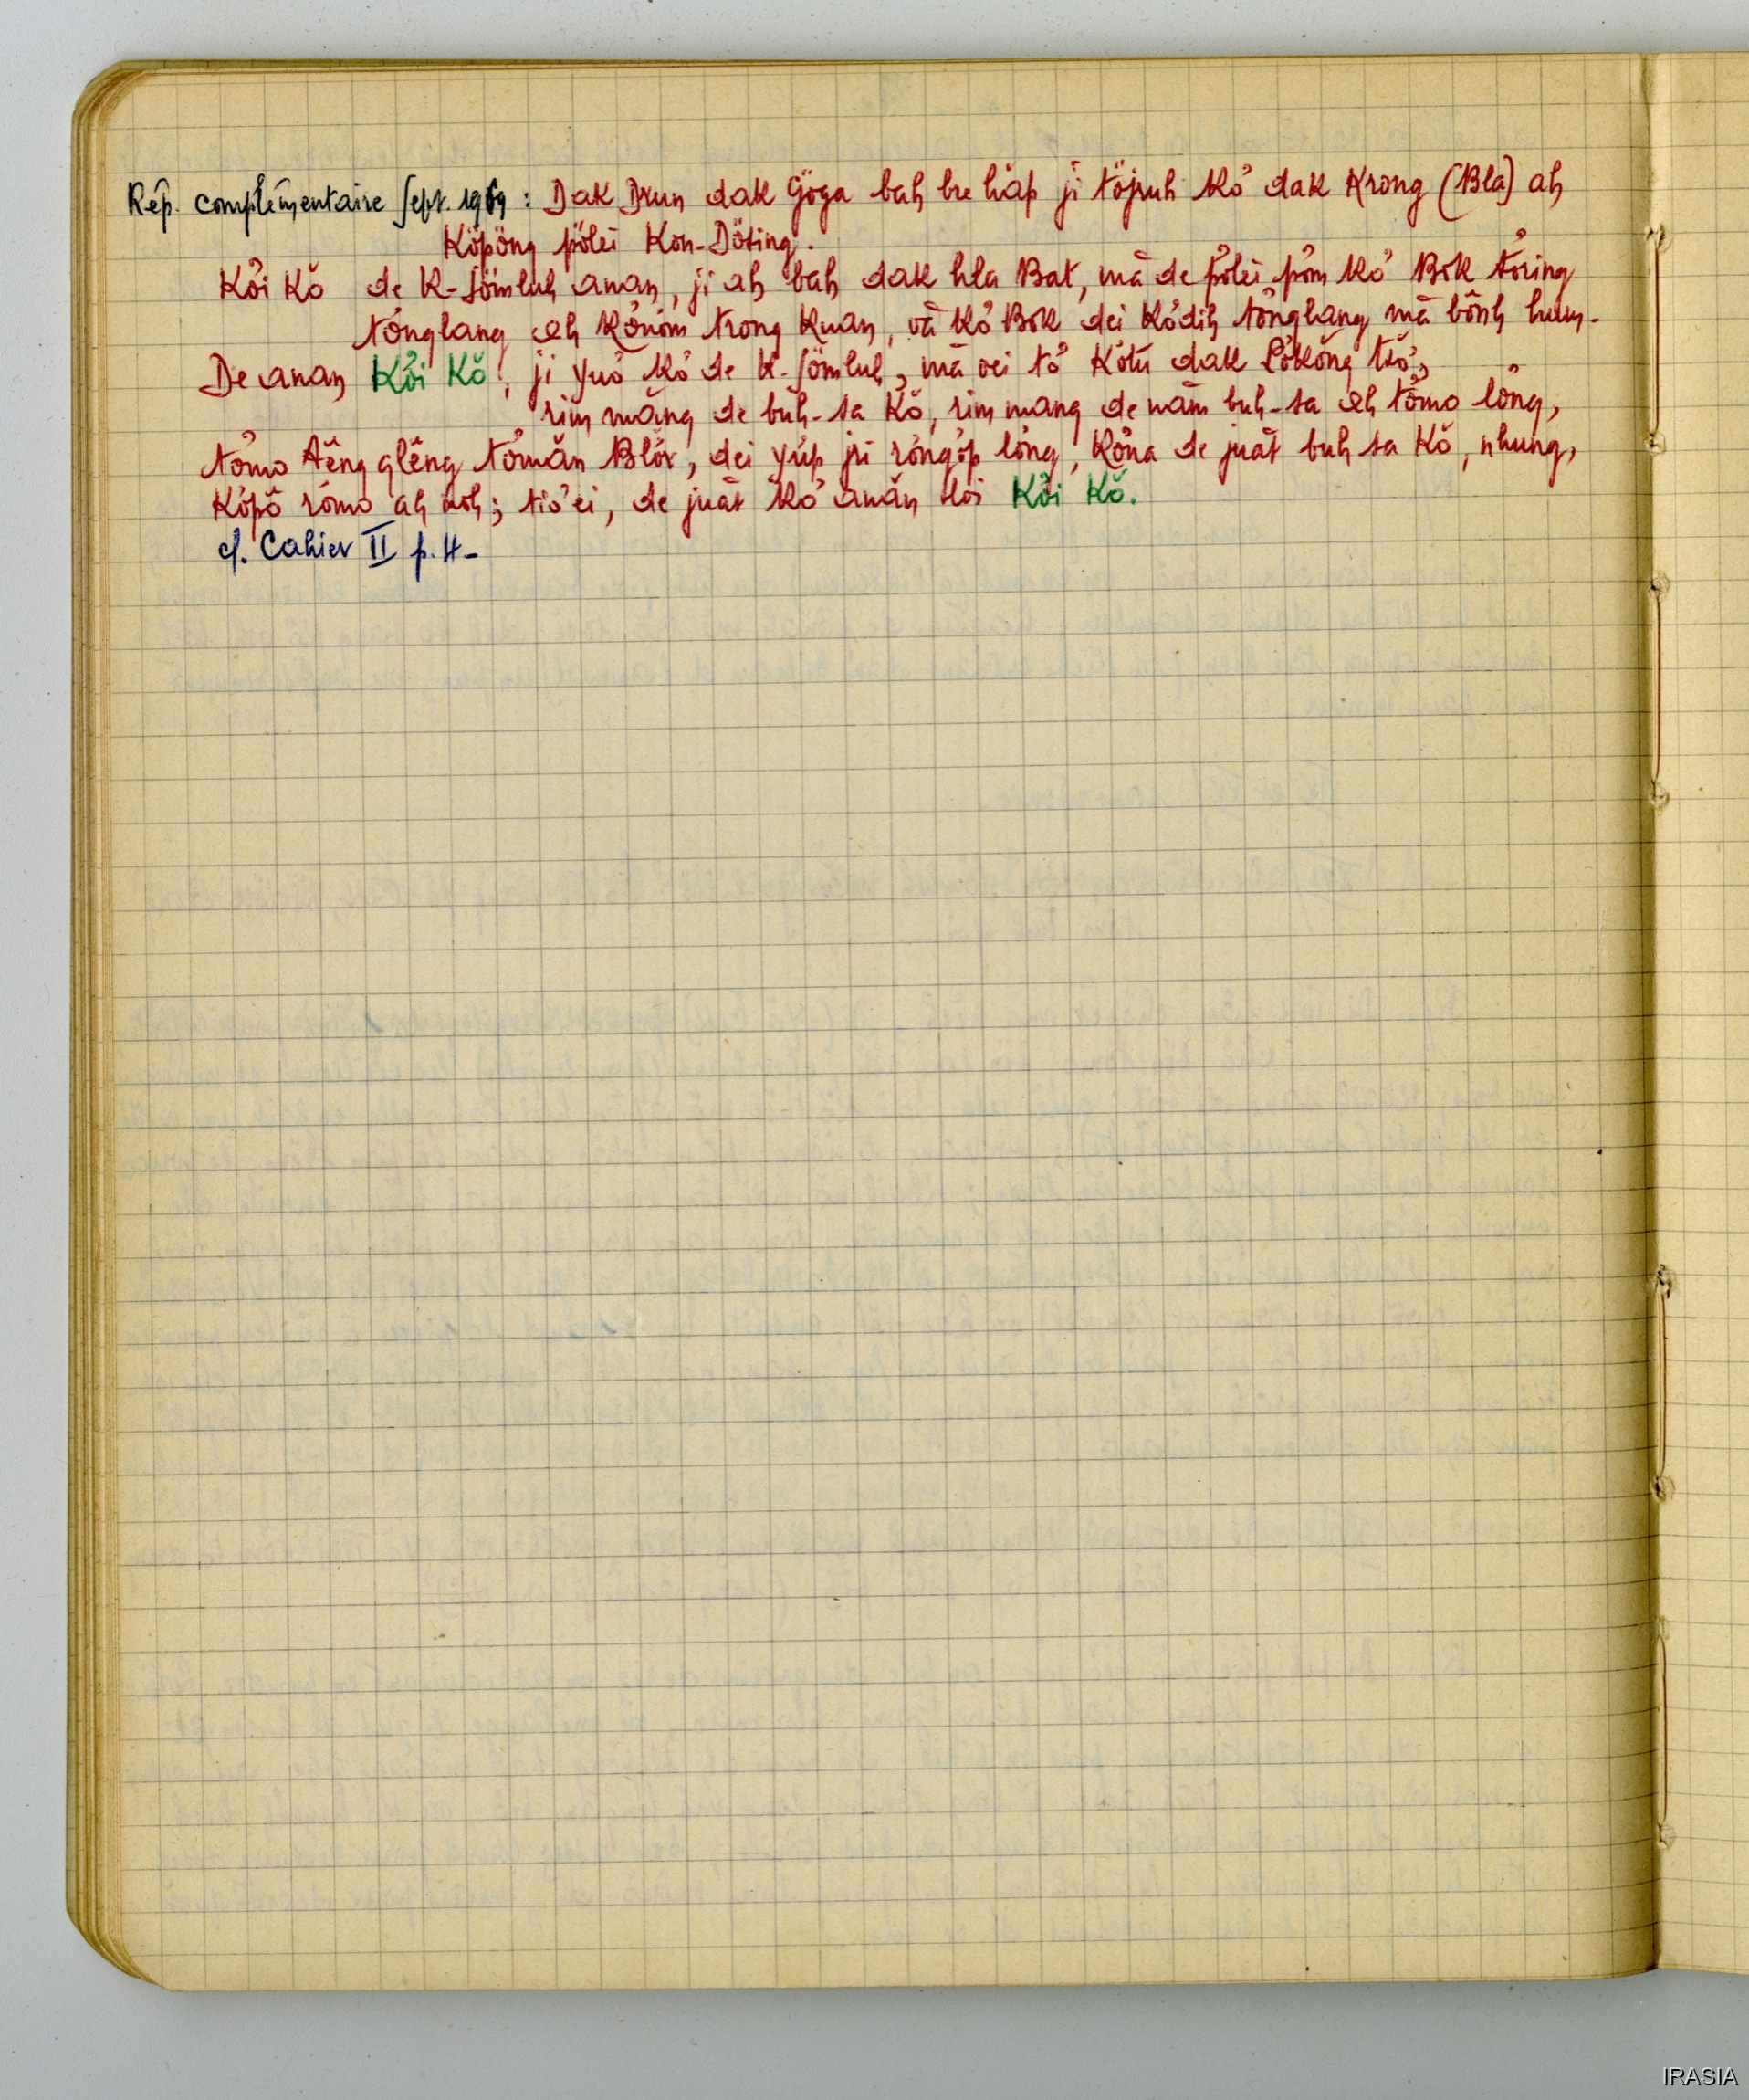 Rép. complémentaire Sept. 1969 : Dak Drun dak Göga bah bre hăp ji töjruh kơ̆ dak Krong (Bla) ah
Köpöng pölei Kon-Döting.
Kơ̆i Kŏ de K-Sömluh anan, ji ah bah dak hla Bat, mă de pơ̆lei pơ̆m kơ̆ Bŏk tơ̆ring
tơ̆nglang ah kơ̆nơ̆m trong kuan, vă kơ̆ Bŏk dei kơ̆dih tơ̆nglang mă bônh hum.
De anan Kơ̆i Kŏ, ji yuơ̆ kơ̆ de K-Sömluh, mă oei tơ̆ kơ̆tŭ dak Lơ̆kŏng triơ̆,
rim măng de buh-sa Kŏ, rim mang de năm buh-sa ah tơ̆mo lŏng,
tơ̆mo tĕng glĕng tơ̆măn Blŏr, dei yŭp jri rơ̆ngơ̆p lŏng, kơ̆na de juăt buh sa kŏ, nhung,
kơ̆pô rơ̆mo ah noh; tiơ̆ ei, de juăt kơ̆ anăn lơi Kơ̆i Kŏ.
cf. Cahier II p. 4-
IRASIA